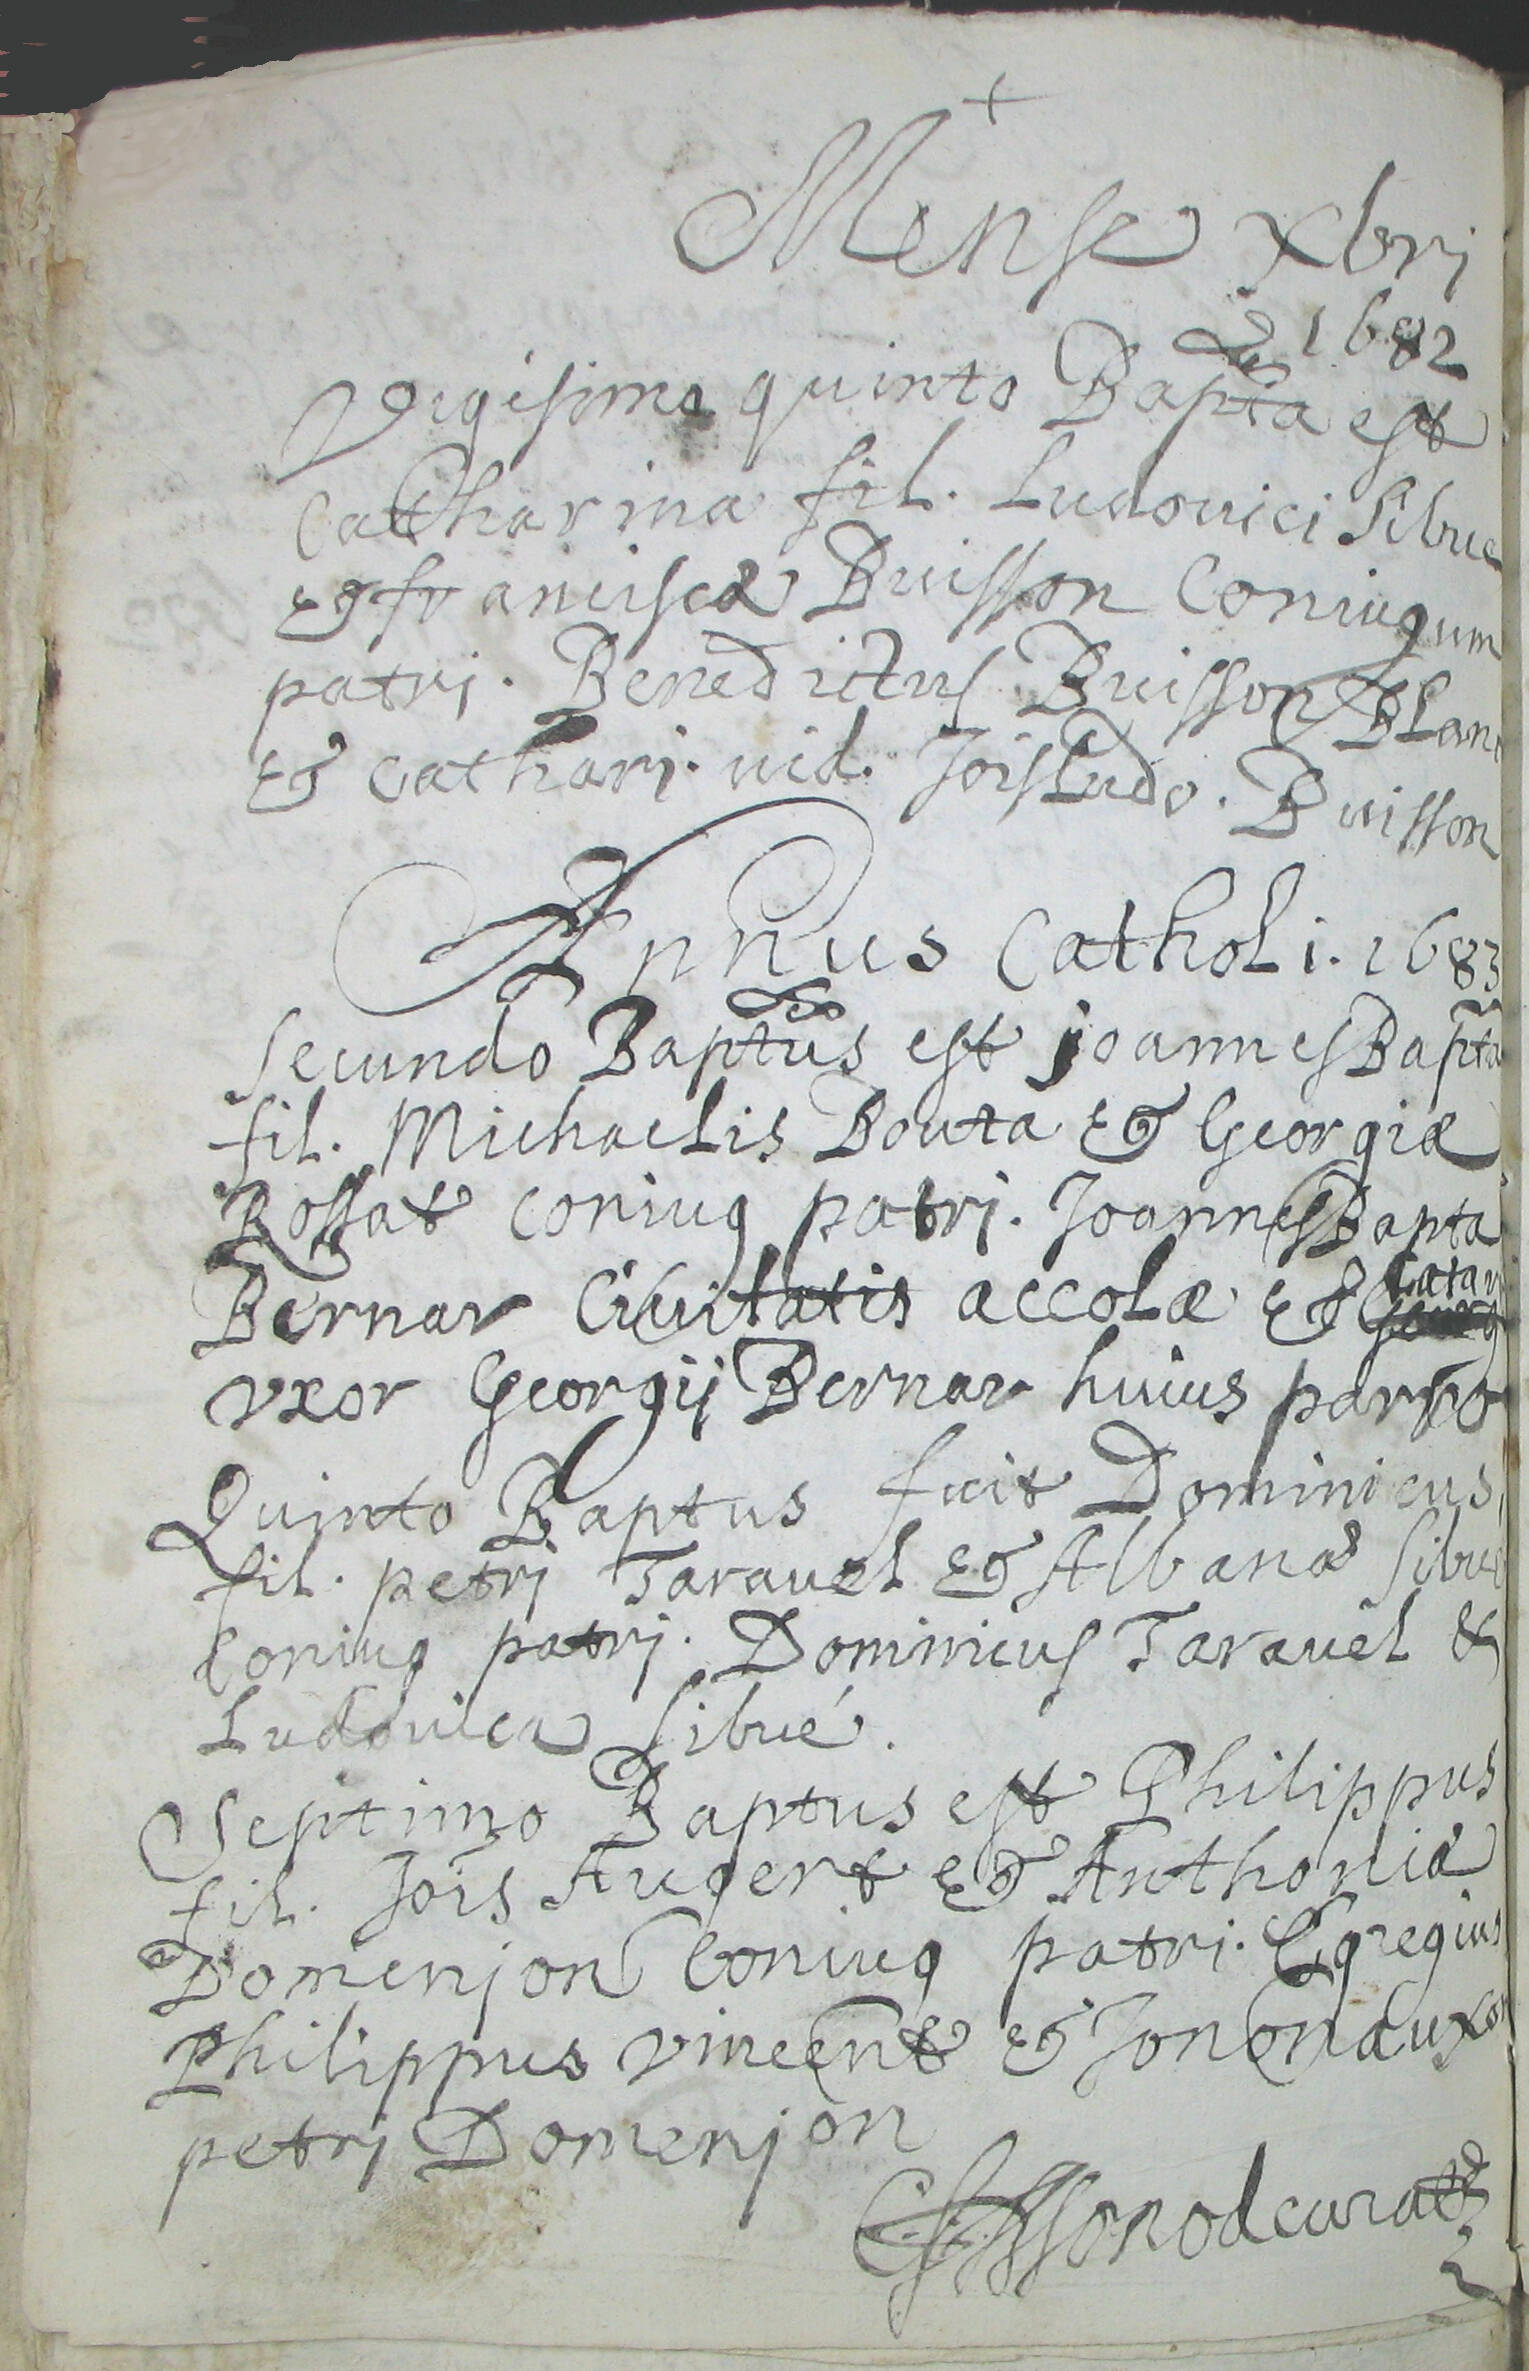 +
Mense xbri
1682
Vigesimo quinto Bapta est
Catharina fil. Ludouici Sibue
& franciscæ Buisson Coniugum
patri. Benedictus Buisson Blanc
& Cathari. uid. Jois Ludo. Buisson
Annus Catholi. 1683
Secundo Baptus est joannes Bapta
fil. Michaelis Bouta & Georgiæ
Rossat coniug patri. Joannes Bapta
Bernar Ciuitatis accolæ & Catar
vxor Georgij Bernar huius parro
Quinto Baptus fuit Dominicus
fil. petri Tarauel & Albanæ Sibué
Coniug patri. Dominicus Tarauel &
Ludouica Sibué.
Septimo Baptus est Philippus
fil. Jois Augert & Anthoniæ
Domenjon Coniug patri. Egregius
Philippus vincent & uxor
petri Domenjon